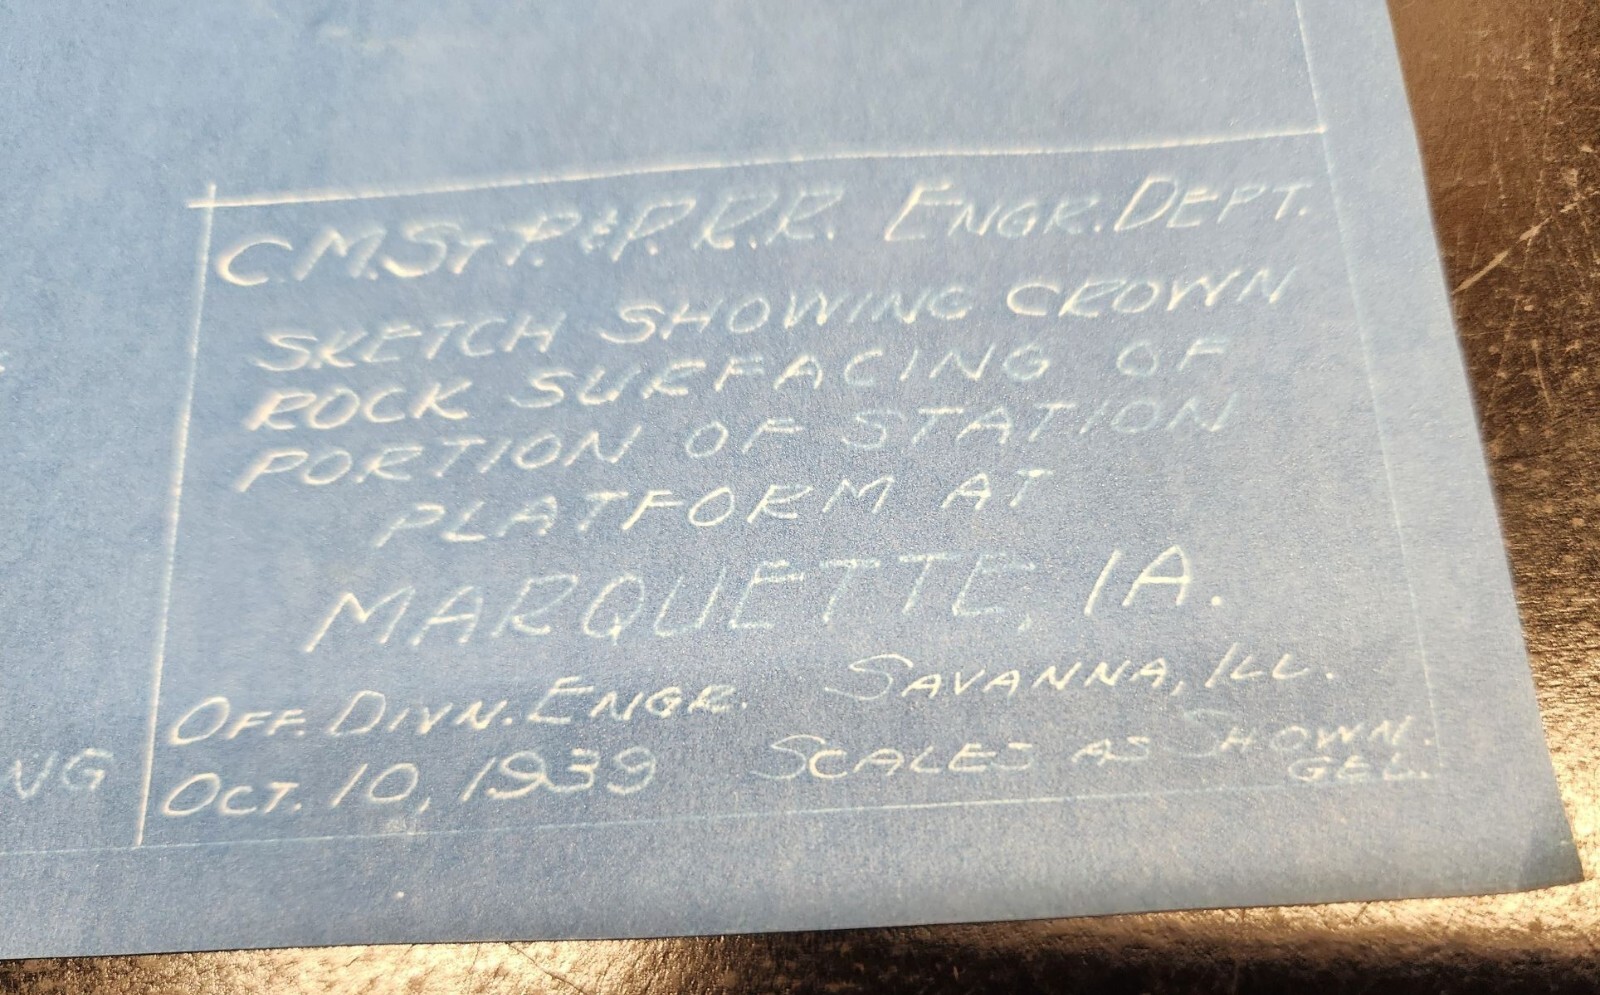 C.M.ST.P.&P.R.R. ENGR. DEPT.
SKETCH SHOWING CROWN
ROCK SURFACING OF
PORTION OF STATION
PLATFORM AT
MARQUETTE, IA.
OFF. DIVN. ENGR. SAVANNA, ILL.
OCT. 10, 1939 SCALES AS SHOWN.
GEL.
VG